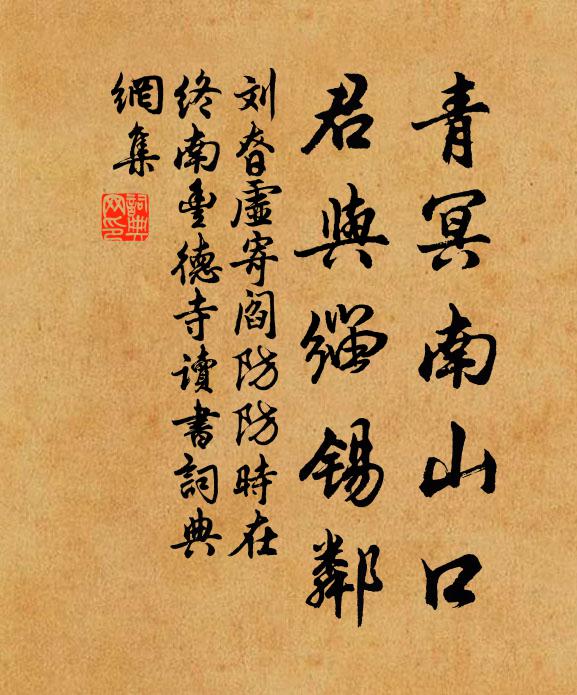 青冥南山口
君與緇錫鄰
刘眘虛寄閻防防時在
终南豐德寺讀書詞典
網集
詞典网印